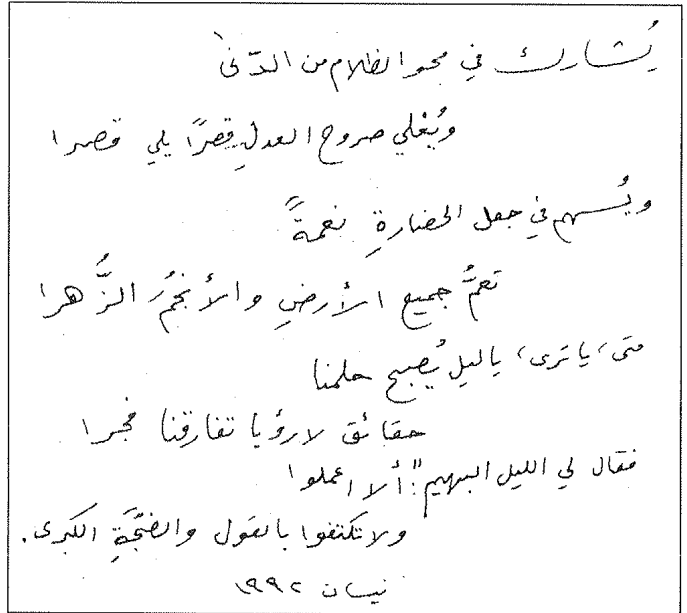 يُشارك في محو الظلام من الدّنى
ويُعلي صروح العدلِ قصرًا يلي قصرا
ويُسهم في جعل الحضارةِ نعمةً
تعمُّ جميع الأرضِ والأنجمُ الزُّهرا
متى، يا ترى، يا ليل يُصبح حلمنا
حقائق لا رؤيا تفارقنا فجرا
فقال لي الليل البهيم: "ألا اعملوا
ولا تكتفوا بالقول والضجّةِ الكبرى.
نيسان ١٩٩٢